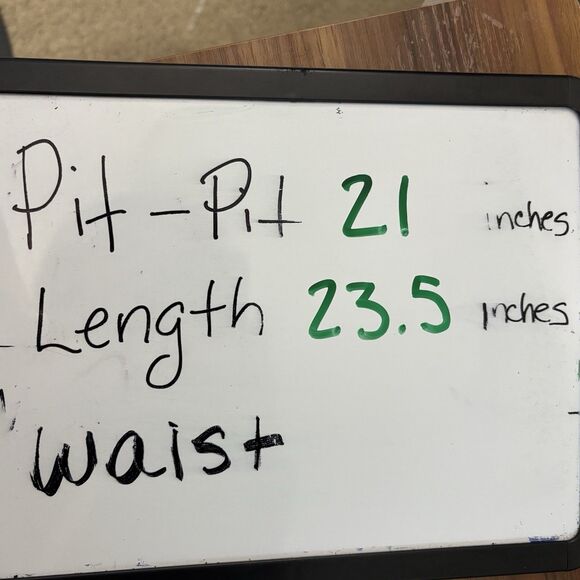 Pit - Pit 21 inches
Length 23.5 inches
waist